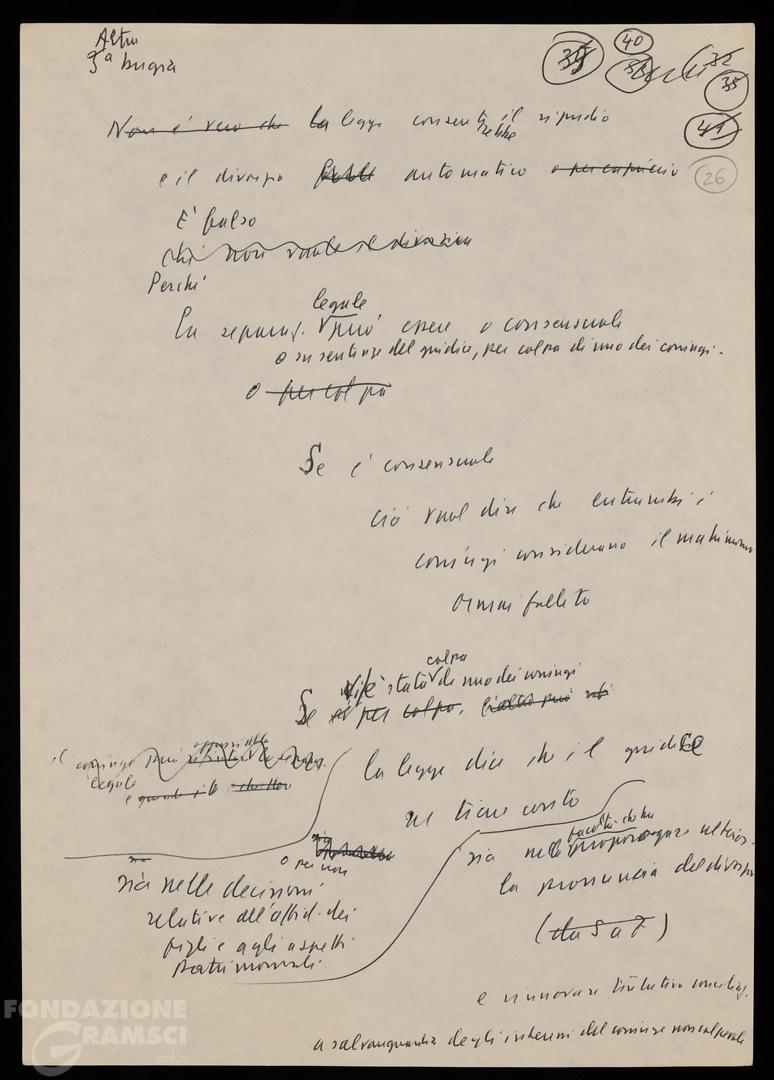 Altra
3ª bugia
35 40
32
35
41
26
Non è vero che la legge consentirebbe il ripudio
e il divorzio automatico o per capriccio
È falso
chi non vuole il divorzio
Perché
legale
La separaz. può essere o consensuale
o su sentenza del giudice, per colpa di uno dei coniugi.
o per colpa
Se è consensuale
ciò vuol dire che entrambi i
coniugi considerano il matrimonio
ormai fallito
colpa
Se vi è stata di uno dei coniugi
è per colpa, l'altro può
il coniuge può opporsi
legale
e
la legge dice che il giudice
ne tiene conto
o per non
sia nelle decisioni
relative all'affid. dei
figli e agli aspetti
patrimoniali
facoltà che ha
sia nella prorogare ulterior.
la pronuncia del divorzio
(da 5 a 7)
e rinnovare tentativo conciliaz.
a salvaguardia degli interessi del coniuge non colpevole
FONDAZIONE
GRAMSCI
onlus